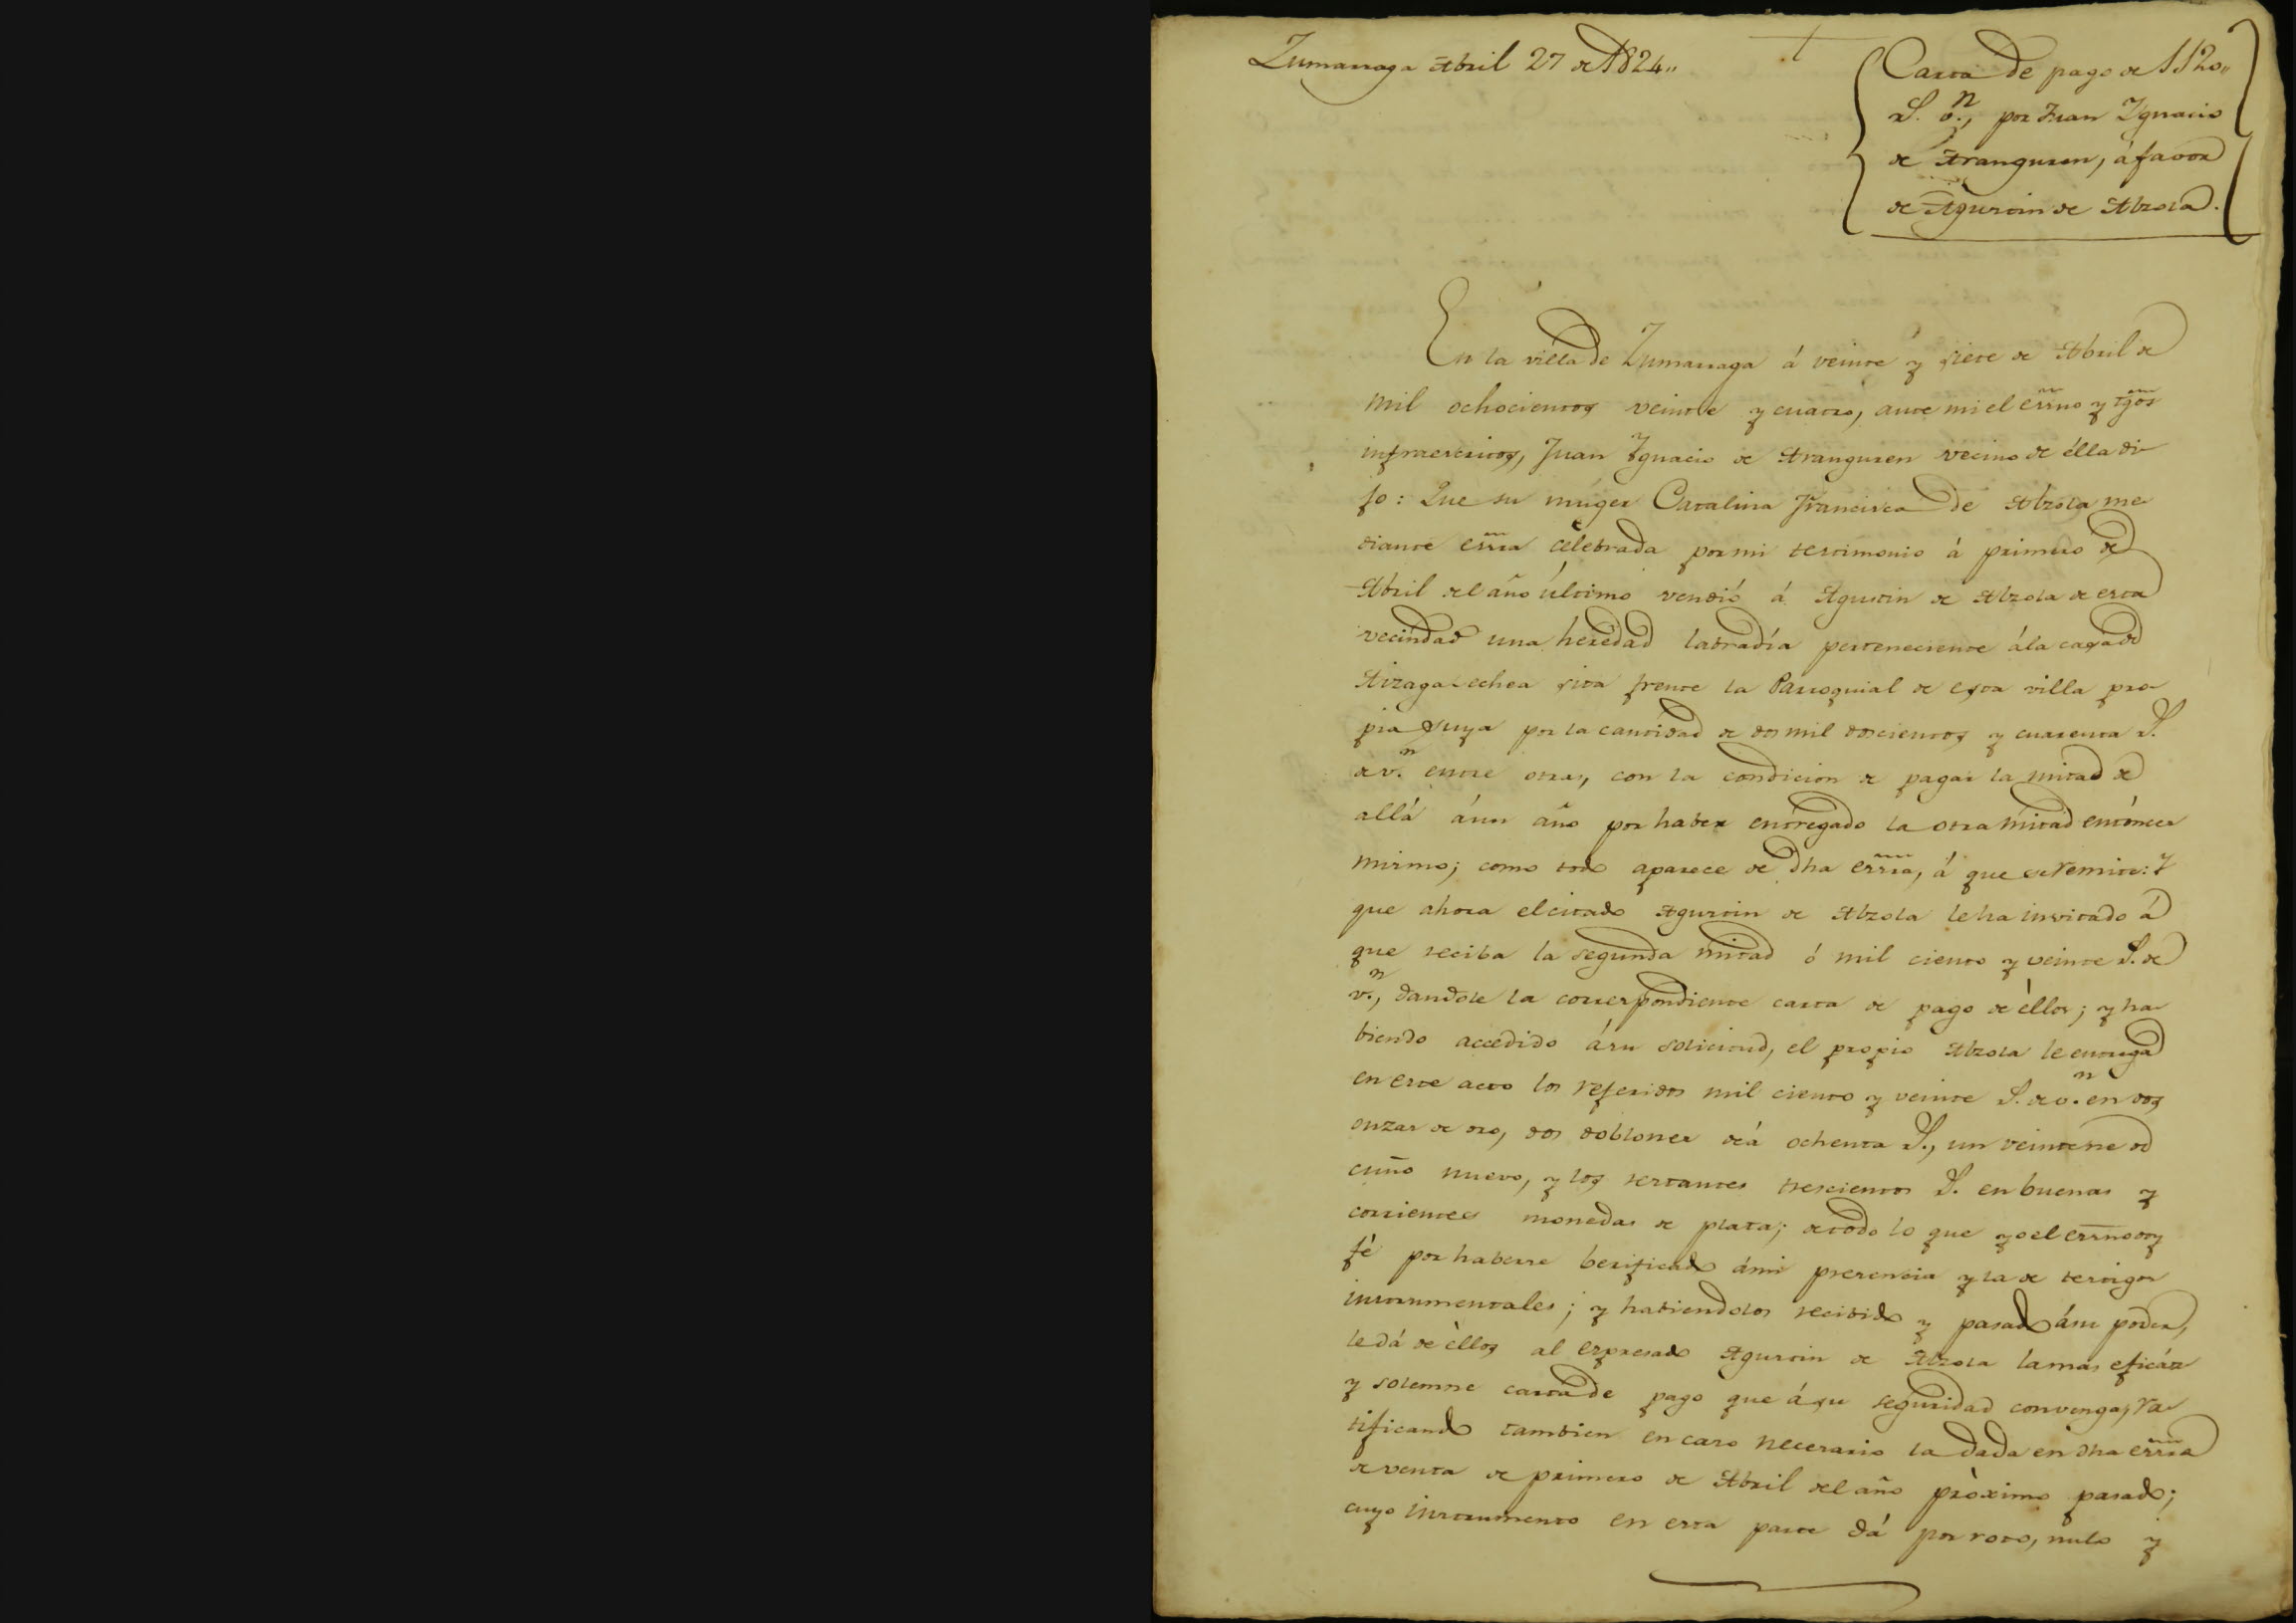 Zumarraga Abril 27 de 1824,,
Carta de pago de 1120,,
R. v.n, por Juan Ygnacio
de Aranguren, á favor
de Agustin de Alzola.
En la villa de Zumarraga á veinte y siete de Abril de
mil ochocientos veinte y cuatro, ante mi el essno y tgos
infraescritos, Juan Ygnacio de Aranguren vecino de élla di-
jo: Que su muger Catalina Francisca de Alzola me-
diante essra celebrada por mi testimonio á primero de
Abril del año último vendió á Agustin de Alzola de esta
vecindad una heredad labradía perteneciente á la casa de
Aizaga-echea sita frente la Parroquial de esta villa pro-
pia suya por la cantidad de dos mil doscientos y cuarenta R.
de v.n entre otras, con la condicion de pagar la mitad de
allá á un año por haber entregado la otra mitad entónces
mismo; como todo aparece de dha essra, á que se remite: Y
que ahora el citado Agustin de Alzola le ha invitado á
que reciba la segunda mitad ó mil ciento y veinte R. de
v.n, dandole la correspondiente carta de pago de éllos; y ha-
biendo accedido á su solicitud, el propio Alzola le entrega
en este acto los referidos mil ciento y veinte R. de v.n en dos
onzas de oro, dos doblones de á ochenta R., un veinteno de
cuño nuevo, y los restantes trescientos R. en buenas y
corrientes monedas de plata; de todo lo que yo el essno doy
fé por haberse berificado á mi presencia y la de testigos
instrumentales; y habiendolos recibido y pasado á su poder,
le dá de éllos al expresado Agustin de Alzola la mas eficáz
y solemne carta de pago que á su seguridad convenga, ra-
tificando tambien en caso necesario la dada en dha essra
de venta de primero de Abril del año próximo pasado;
cuyo instrumento en esta parte dá por roto, nulo y